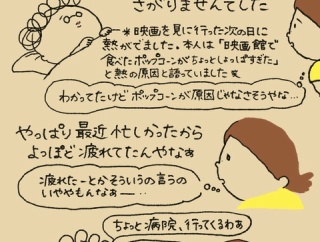 さがりませんでした
*映画を見に行った次の日に
熱がでました。本人は「映画館で
食べたポップコーンがちょっとしょっぱすぎた」
と熱の原因と語っていました
わかってたけどポップコーンが原因じゃなさそうやな…
やっぱり最近忙しかったから
よっぽど疲れてたんやなぁ
疲れたーとかそういうの言うの
いややもんなぁー…
ちょっと病院、行ってくるわぁ